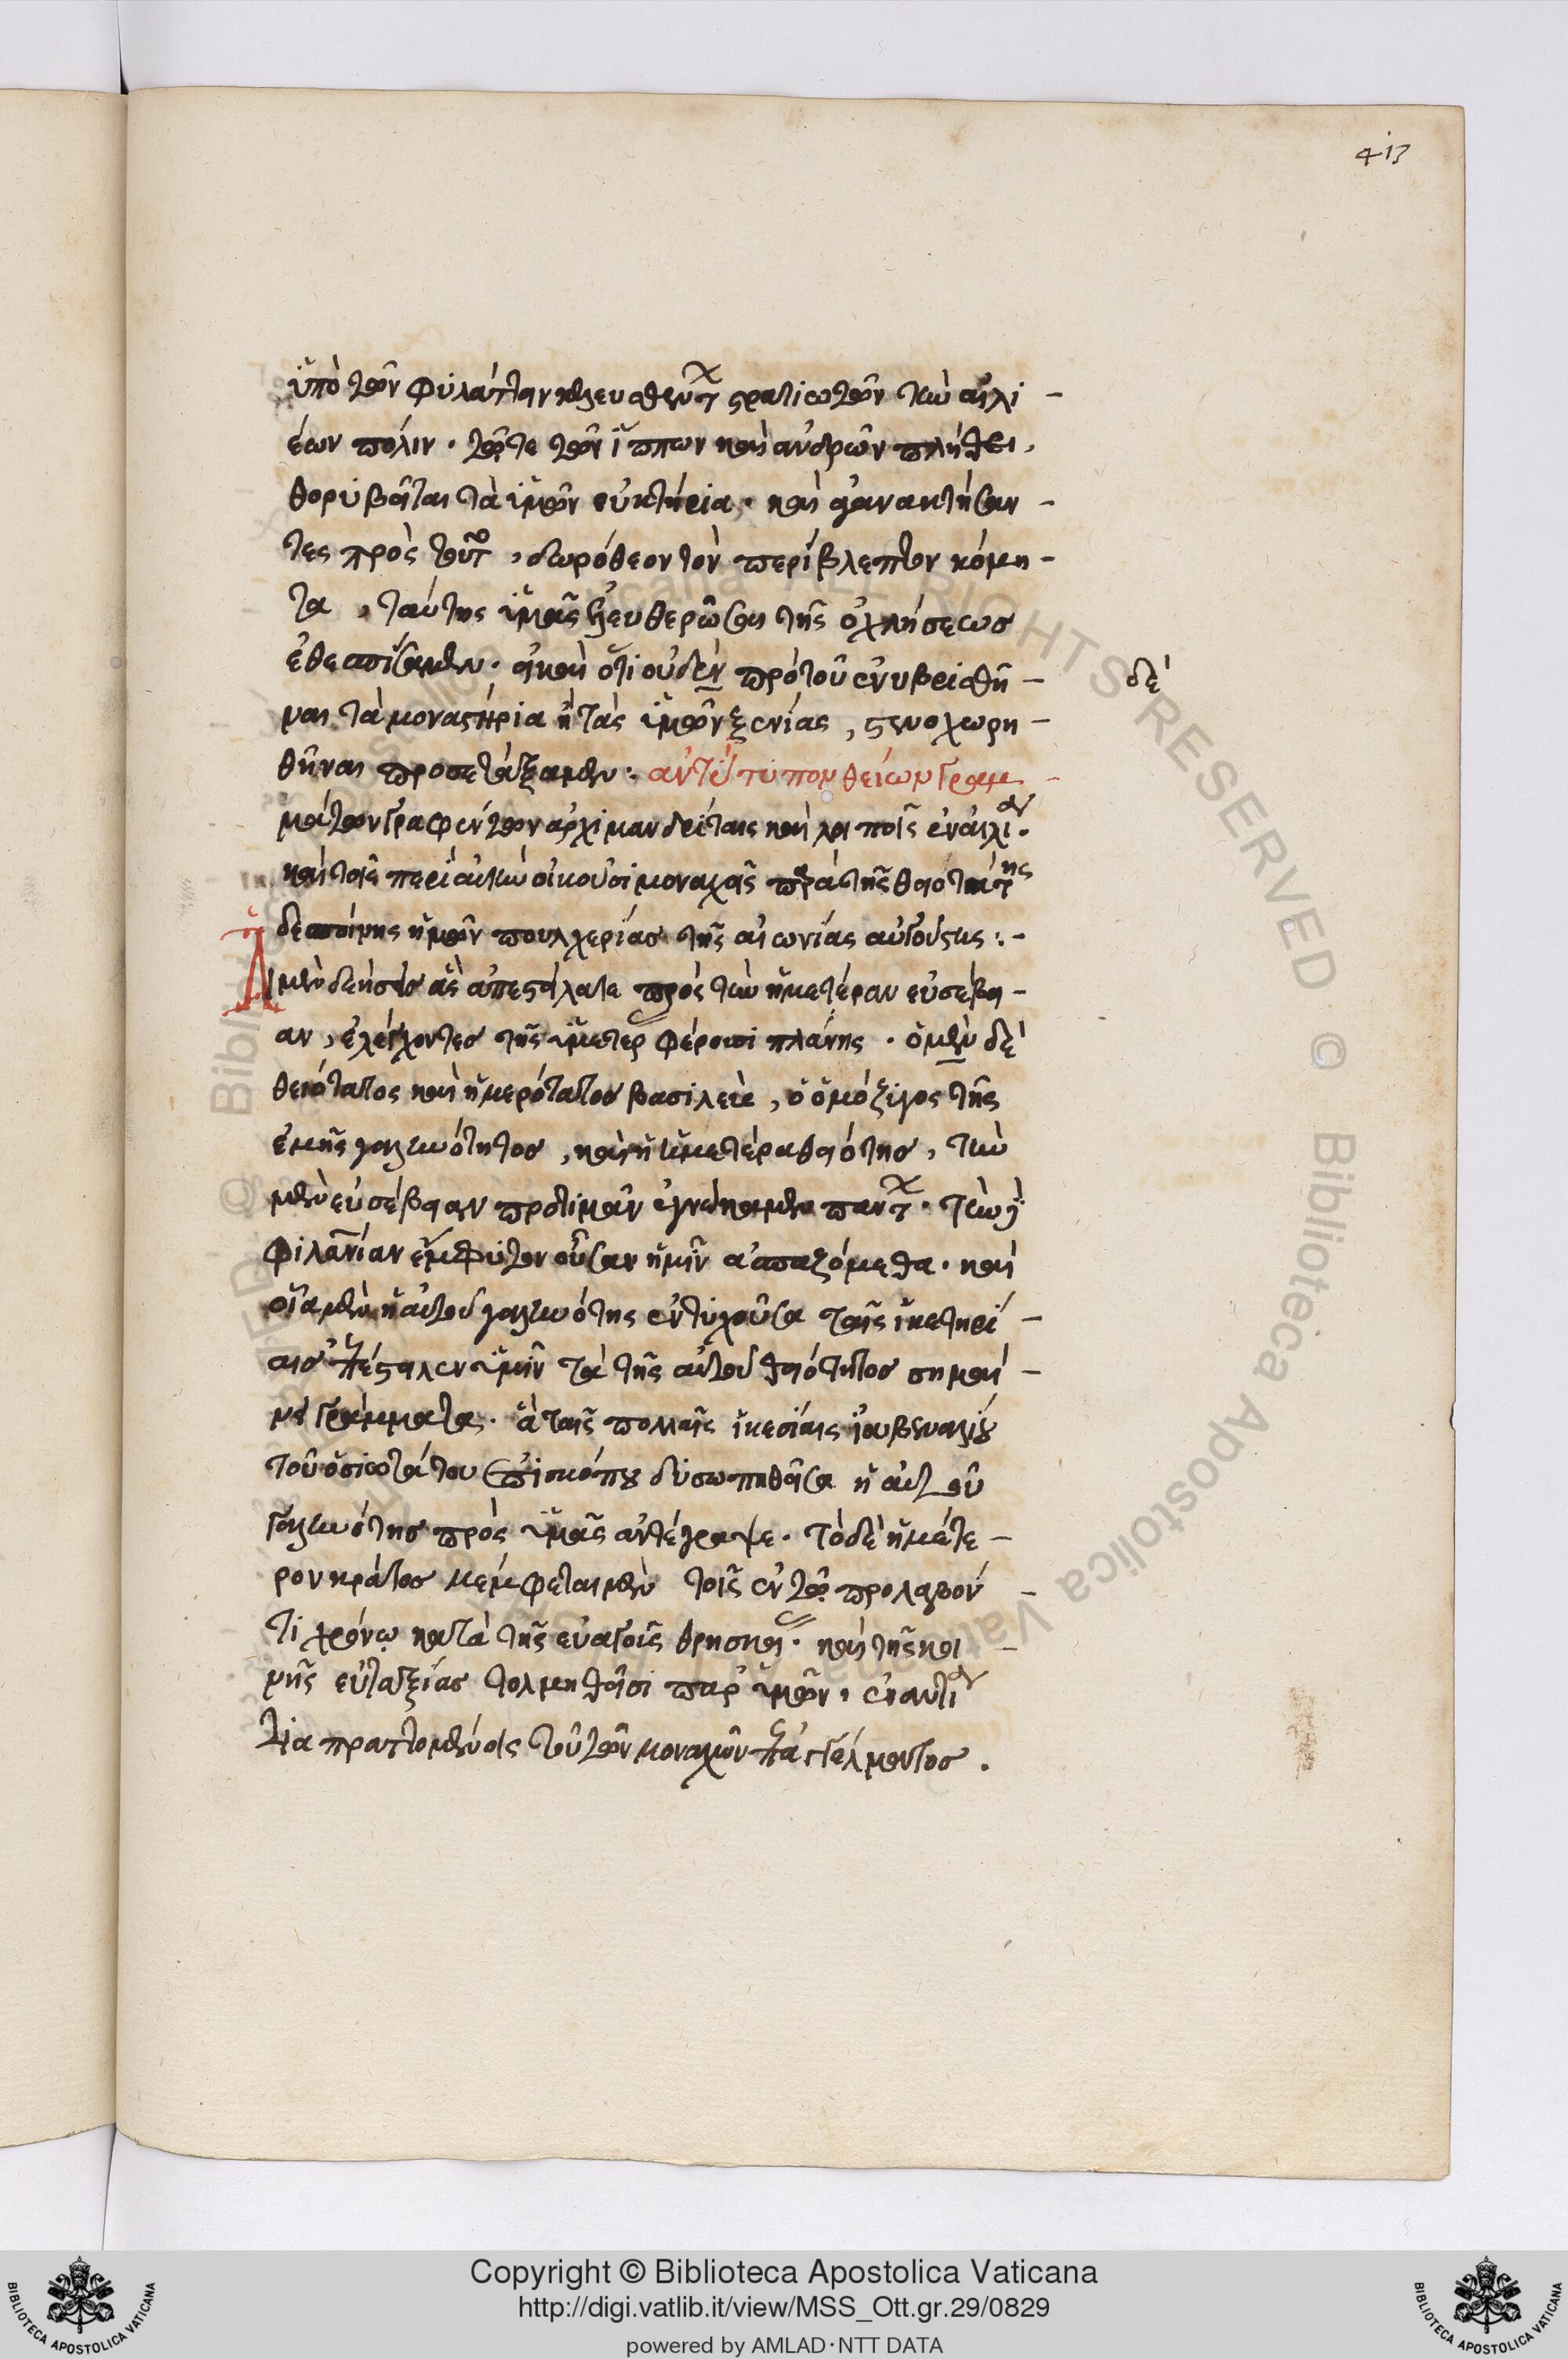 413
ὑπὸ τῶν φυλάττειν κελευσθέντ στρατιωτῶν τὴν αἰλι
έων πόλιν. τῶ τε τῶν ἵππων καὶ ἀνδρῶν πλήθει,
θορυβεῖται τὰ ὑμῶν εὐκτήρια. καὶ ἀγανακτήσαν
τες πρὸς τοῦτο, δωρόθεον τὸν περίβλεπτον κόμη
τα, ταύτης ὑμᾶς ἐλευθερῶσαι τῆς ὀχλήσεως
ἐθεσπίσαμεν. εἰ καὶ ὅτι οὐδὲν πρὸ τοῦ ἐνυβρισθῆ
δὲ
ναι τὰ μοναστήρια ἢ τὰς ὑμῶν ξενίας, στενοχωρη
θῆναι προσετάξαμεν: ἀντίτυπον θείων γραμ
μάτων γραφέντων ἀρχιμανδρίταις καὶ λοιποῖς ἐν αἰλι.
καὶ τοῖς περὶ αὐτὴν οἰκοῦσι μοναχοῖς παρὰ τῆς θειοτάτης
δεσποίνης ἡμῶν πουλχερίας τῆς αἰωνίας αὐγούστης:
Ἁ μὲν δεήσεις ἃς ἀπεστάλατε πρὸς τὴν ἡμετέραν εὐσέβει
αν, ἐλέγχοντες τῆς ὑμετερ φέρουσι πλάνης. ὁ μὲν δὲ
θειότατος καὶ ἡμερότατος βασιλεὺς, ὁ ὁμόζυγος τῆς
ἐμῆς γαληνότητος, καὶ ἡ ἡμετέρα θειότης, τὴν
μὲν εὐσέβειαν προτιμᾶν ἐγνώκαμεν παντ. τὴν
φιλανίαν ἔμφυτον οὖσαν ἡμῖν ἀσπαζόμεθα. καὶ
οἷα μὲν ἡ αὐτοῦ γαληνότης ἐντυχοῦσα ταῖς ἱκετηρί
αις ἐπέσταλεν ὑμῖν τὰ τῆς αὐτοῦ θειότητος σημαί
νει γράμματα. ἃ ταῖς πολλαῖς ἱκεσίαις ἰουβεναλίου
τοῦ ὁσιωτάτου ἐπισκόπου δυσωπηθεῖσα ἡ αὐτοῦ
γαληνότης πρὸς ὑμᾶς ἀντέγραψε. τὸ δὲ ἡμέτε
ρον κράτος μέμφεται μὲν τοῖς ἐν τῶ προλαβόν
τι χρόνῳ κατὰ τῆς εὐαγοῦς θρησκει. καὶ τῆς κοι
νῆς εὐταξίας τολμηθεῖσι παρ' ὑμῶν. ἐναντι
τία πραττομένοις τοῦ τῶν μοναχῶν ἐπαγγέλματος.
Copyright © Biblioteca Apostolica Vaticana
http://digi.vatlib.it/view/MSS_Ott.gr.29/0829
powered by AMLAD·NTT DATA